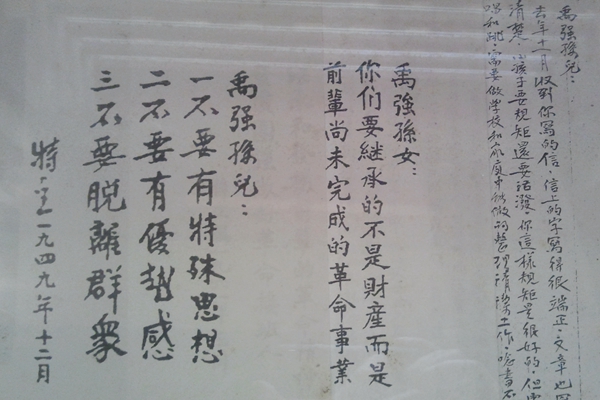 禹强孫兒：
去年十一月收到你寫的信，信上的字寫得很端正，文章也
清楚，小孩子要規矩還要活潑，你這樣規矩是很好的，但
唱和跳，需要做學校和家庭中能做的整理清潔工作，唸書不
禹強孫女：
你们要継承的不是財産而是
前輩尚未完成的革命事業
禹强孫兒：
一不要有特殊思想
二不要有優越感
三不要脱離群衆
特立一九四九年十二月